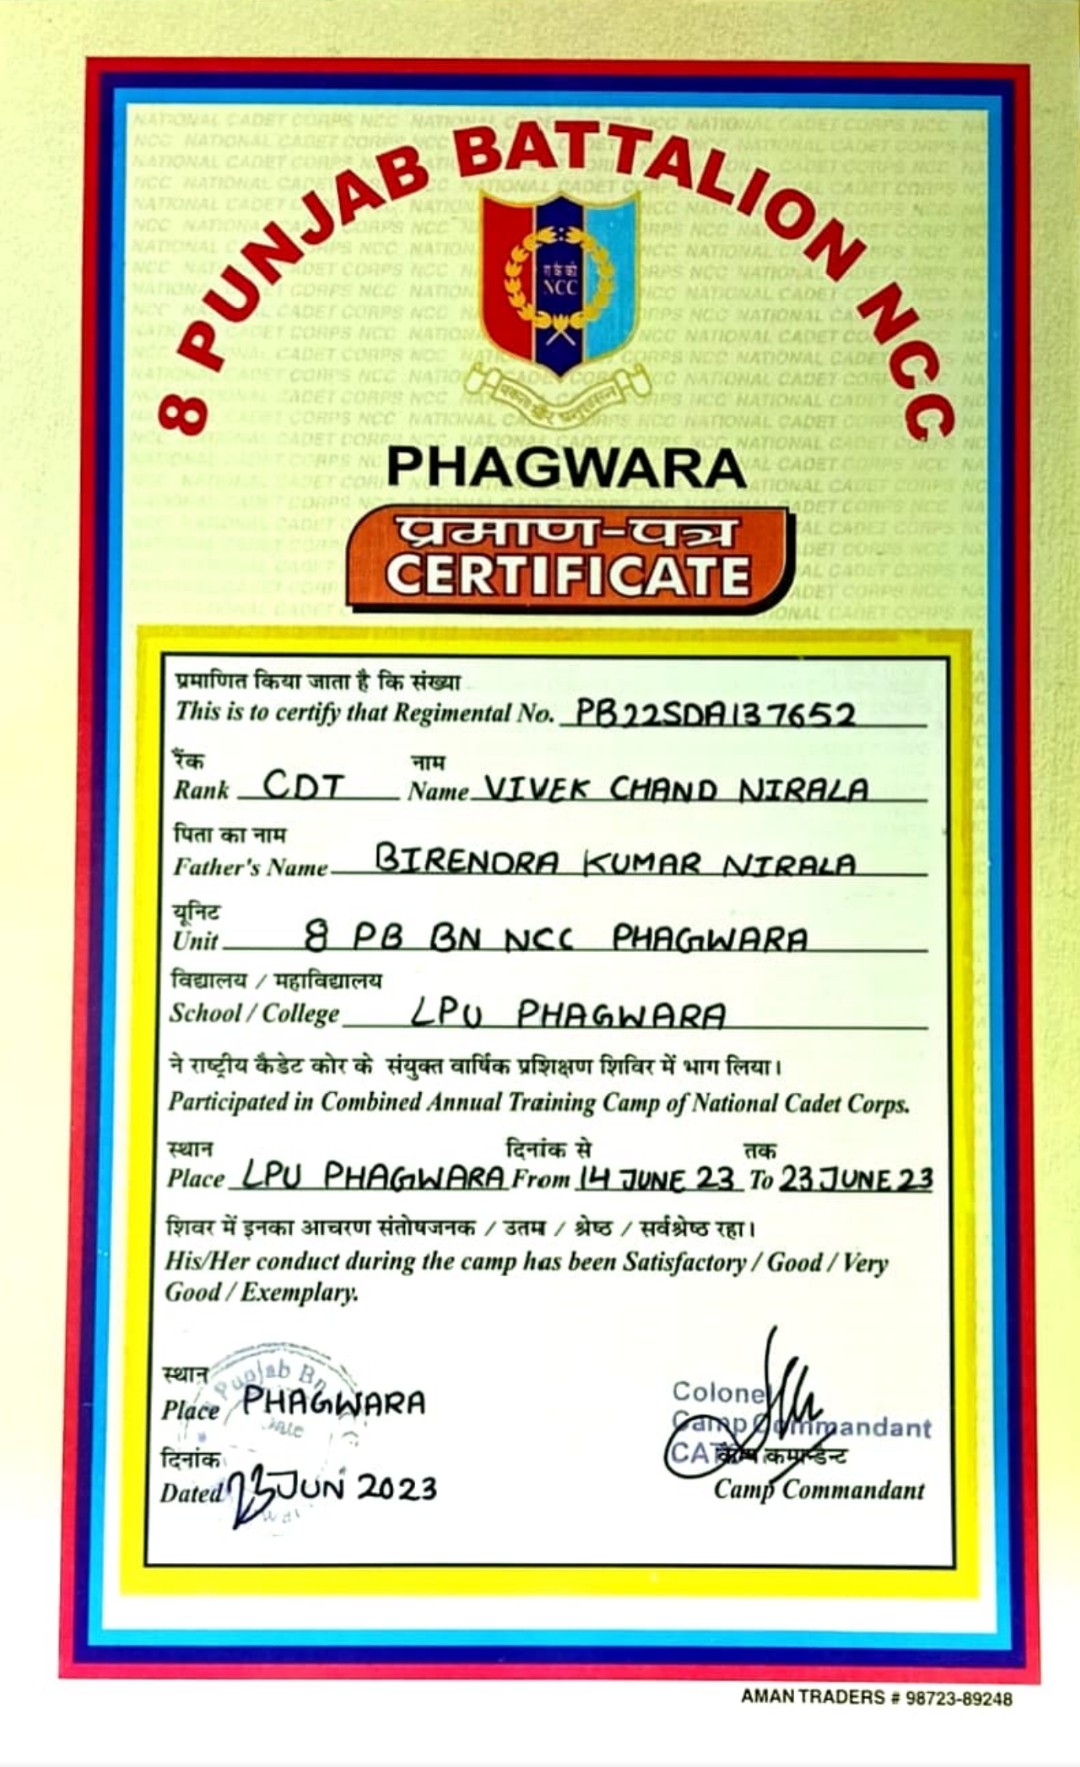 8 PUNJAB BATTALION NCC
रा कै को
NCC
एकता और अनुशासन
PHAGWARA
प्रमाण-पत्र
CERTIFICATE
प्रमाणित किया जाता है कि संख्या
This is to certify that Regimental No. PB22SDA137652
रैंक नाम
Rank CDT Name VIVEK CHAND NIRALA
पिता का नाम
Father's Name BIRENDRA KUMAR NIRALA
यूनिट
Unit 8 PB BN NCC PHAGWARA
विद्यालय / महाविद्यालय
School / College LPU PHAGWARA
ने राष्ट्रीय कैडेट कोर के संयुक्त वार्षिक प्रशिक्षण शिविर में भाग लिया।
Participated in Combined Annual Training Camp of National Cadet Corps.
स्थान दिनांक से तक
Place LPU PHAGWARA From 14 JUNE 23 To 23 JUNE 23
शिवर में इनका आचरण संतोषजनक / उतम / श्रेष्ठ / सर्वश्रेष्ठ रहा।
His/Her conduct during the camp has been Satisfactory / Good / Very
Good / Exemplary.
Punjab Bn
स्थान
Place PHAGWARA
Date
दिनांक
Dated 23 JUN 2023
Colonel
Camp Commandant
कैम्प कमान्डेन्ट
Camp Commandant
AMAN TRADERS # 98723-89248